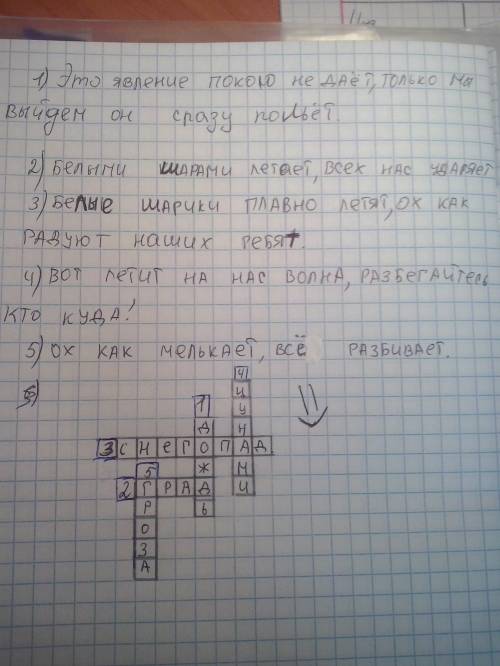 1) Это явление покою не даёт, только мы
выйдем он сразу польёт.
2) Белыми шарами летает, всех нас ударяет
3) Белые шарики плавно летят, ох как
радуют наших ребят.
4) Вот летит на нас волна, разбегайтесь
кто куда!
5) Ох как мелькает, всё разбивает.
4
1 Ц
Д У
Н
3 СНЕГОПАД
5 Ж М
2 ГРАД И
Р Ь
О
З
А